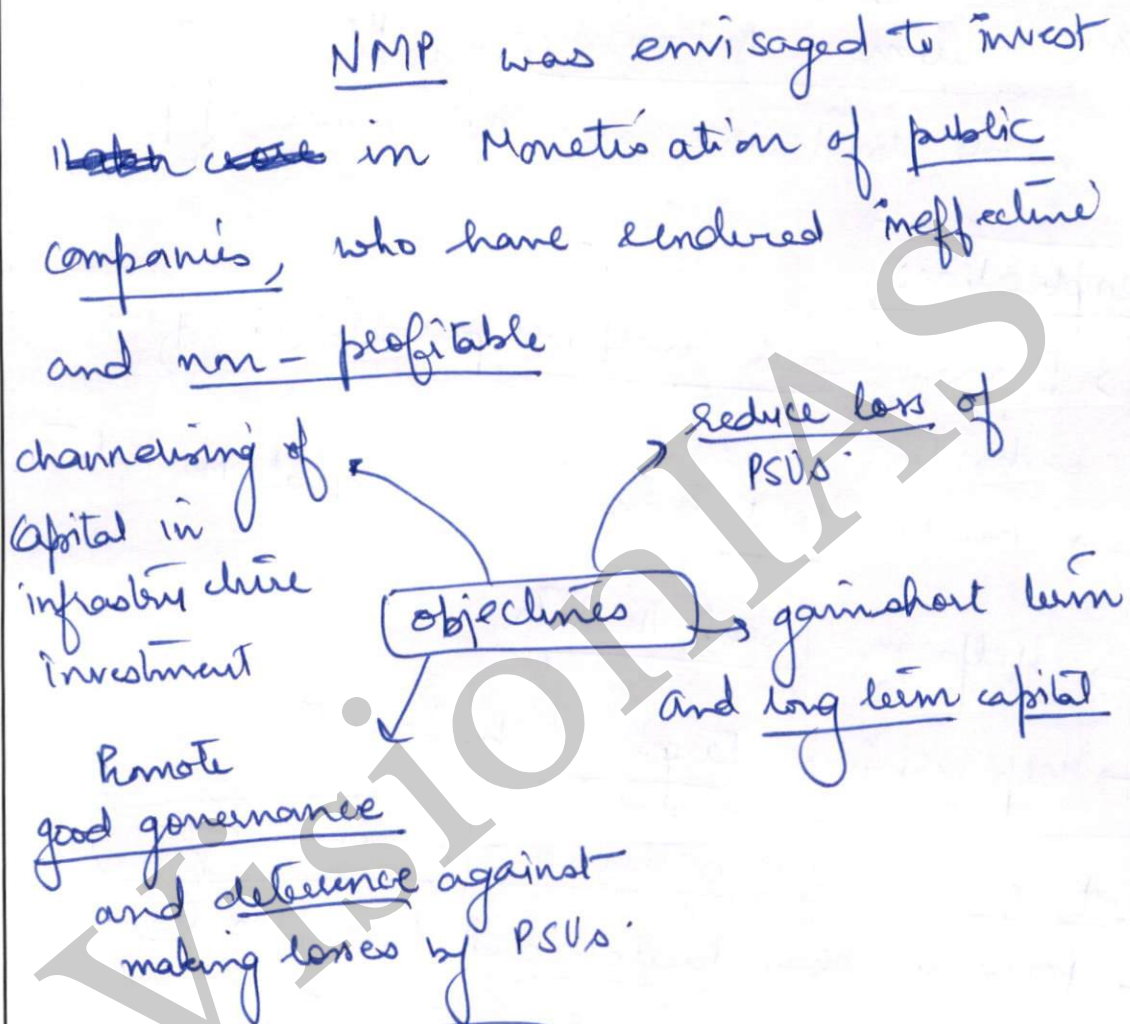 NMP was envisaged to invest
in Monetisation of public
companies, who have rendered ineffective
and non-profitable
channelising of
Capital in
infrastructure
investment
reduce loss of
PSUs.
objectives
gain short term
and long term capital
Promote
good governance
and deterence against
making losses by PSUs.
VisionIAS